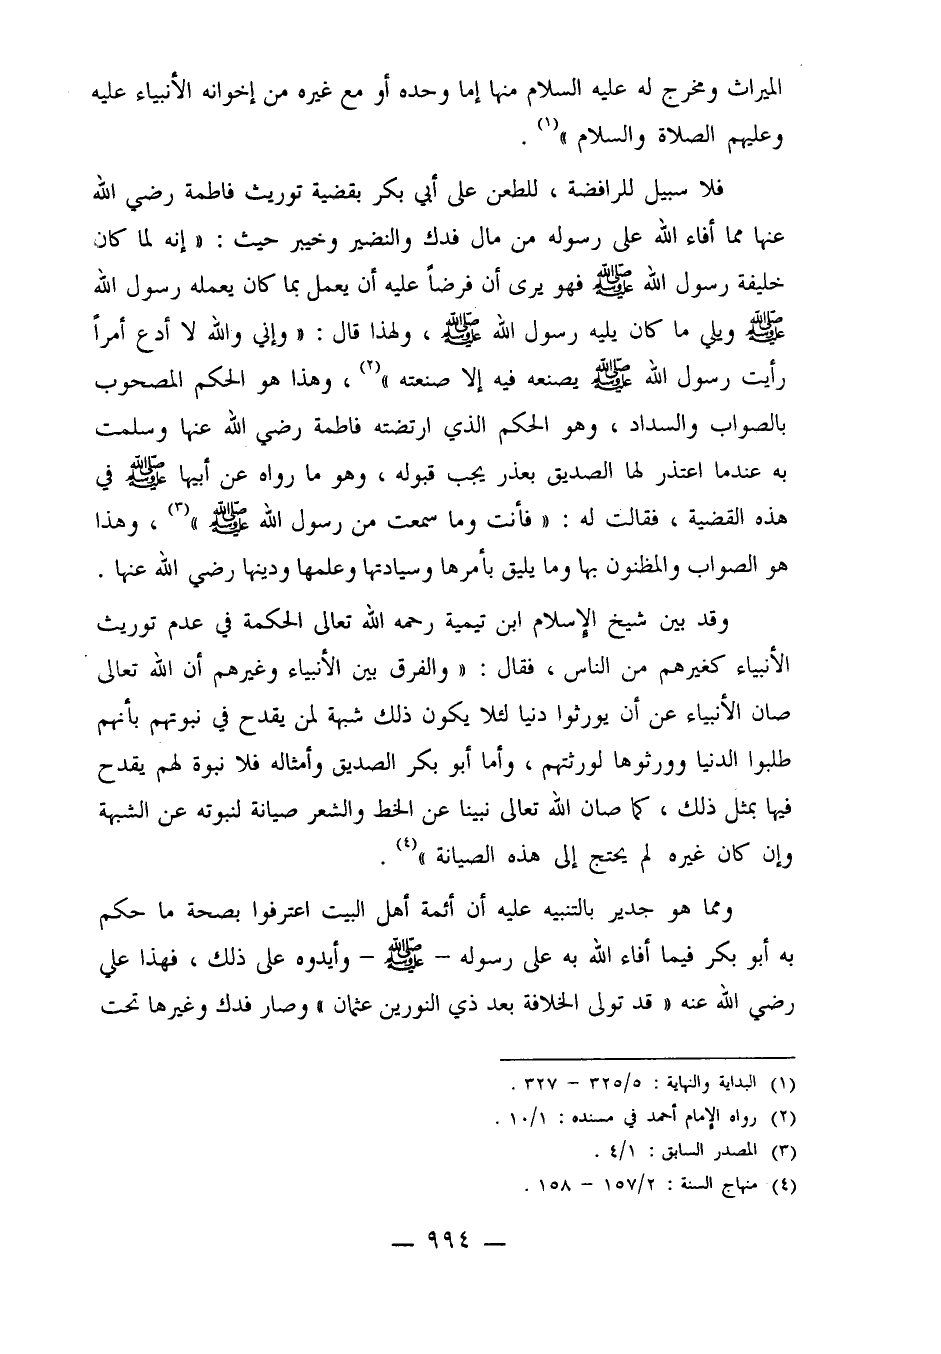 الميراث ومخرج له عليه السلام منها إما وحده أو مع غيره من إخوانه الأنبياء عليه
وعليهم الصلاة والسلام »(١) .
فلا سبيل للرافضة ، للطعن على أبي بكر بقضية توريث فاطمة رضي الله
عنها مما أفاء الله على رسوله من مال فدك والنضير وخيبر حيث : « إنه لما كان
خليفة رسول الله ﷺ فهو يرى أن فرضاً عليه أن يعمل بما كان يعمله رسول الله
ﷺ ويلي ما كان يليه رسول الله ﷺ ، ولهذا قال : « وإني والله لا أدع أمراً
رأيت رسول الله ﷺ يصنعه فيه إلا صنعته »(٢) ، وهذا هو الحكم المصحوب
بالصواب والسداد ، وهو الحكم الذي ارتضته فاطمة رضي الله عنها وسلمت
به عندما اعتذر لها الصديق بعذر يجب قبوله ، وهو ما رواه عن أبيها ﷺ في
هذه القضية ، فقالت له : « فأنت وما سمعت من رسول الله ﷺ »(٣) ، وهذا
هو الصواب والمظنون بها وما يليق بأمرها وسيادتها وعلمها ودينها رضي الله عنها .
وقد بين شيخ الإسلام ابن تيمية رحمه الله تعالى الحكمة في عدم توريث
الأنبياء كغيرهم من الناس ، فقال : « والفرق بين الأنبياء وغيرهم أن الله تعالى
صان الأنبياء عن أن يورثوا دنيا لئلا يكون ذلك شبهة لمن يقدح في نبوتهم بأنهم
طلبوا الدنيا وورثوها لورثتهم ، وأما أبو بكر الصديق وأمثاله فلا نبوة لهم يقدح
فيها بمثل ذلك ، كما صان الله تعالى نبينا عن الخط والشعر صيانة لنبوته عن الشبهة
وإن كان غيره لم يحتج إلى هذه الصيانة »(٤) .
ومما هو جدير بالتنبيه عليه أن أئمة أهل البيت اعترفوا بصحة ما حكم
به أبو بكر فيما أفاء الله به على رسوله – ﷺ – وأيدوه على ذلك ، فهذا علي
رضي الله عنه « قد تولى الخلافة بعد ذي النورين عثمان » وصار فدك وغيرها تحت
(١) البداية والنهاية : ٣٢٥/٥ – ٣٢٧ .
(٢) رواه الإمام أحمد في مسنده : ١٠/١ .
(٣) المصدر السابق : ٤/١ .
(٤) منهاج السنة : ١٥٧/٢ – ١٥٨ .
— ٩٩٤ —